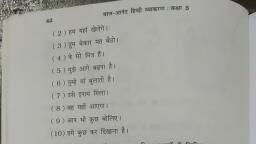 44 बाल-आनंद हिन्दी व्याकरण : कक्षा 5
( 2 ) हम यहाँ खेलेंगे।
( 3 ) तुम बेकार मत बैठो।
( 4 ) वे मेरे मित्र हैं।
( 5 ) मुझे आगे बढ़ना है।
( 6 ) तुम्हें माँ बुलाती है।
( 7 ) उसे इनाम मिला।
( 8 ) वह नहीं आएगा।
( 9 ) आप भी कुछ बोलिए।
(10) हमें कुछ कर दिखाना है।